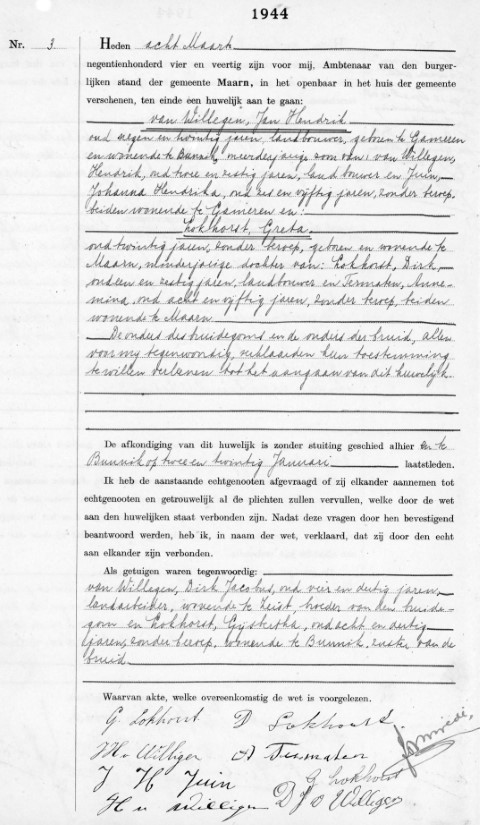 1944
Nr. 3. Heden acht Maart
negentienhonderd vier en veertig zijn voor mij, Ambtenaar van den burger-
lijken stand der gemeente Maarn, in het openbaar in het huis der gemeente
verschenen, ten einde een huwelijk aan te gaan:
van Willegen, Jan Hendrik
oud negen en twintig jaren, landbouwer, geboren te Gameren
en wonende te Bunnik, meerderjarige zoon van: van Willegen,
Hendrik, oud twee en zestig jaren, landbouwer en Juin,
Johanna Hendrika, oud zes en vijftig jaren, zonder beroep,
beiden wonende te Gameren en:
Lokhorst, Greta.
oud twintig jaren, zonder beroep, geboren en wonende te
Maarn, minderjarige dochter van: Lokhorst, Dirk,
oud een en zestig jaren, landbouwer en Termaten, Anne-
mina, oud acht en vijftig jaren, zonder beroep, beiden
wonende te Maarn
De ouders des bruidegoms en de ouders der bruid, allen
voor mij tegenwoordig, verklaarden hun toestemming
te willen verleenen tot het aangaan van dit huwelijk.
De afkondiging van dit huwelijk is zonder stuiting geschied alhier en te
Bunnik op twee en twintig Januari laatstleden.
Ik heb de aanstaande echtgenooten afgevraagd of zij elkander aannemen tot
echtgenooten en getrouwelijk al de plichten zullen vervullen, welke door de wet
aan den huwelijken staat verbonden zijn. Nadat deze vragen door hen bevestigend
beantwoord werden, heb ik, in naam der wet, verklaard, dat zij door den echt
aan elkander zijn verbonden.
Als getuigen waren tegenwoordig:
van Willegen, Dirk Jacobus, oud vier en dertig jaren,
landarbeider, wonende te Zeist, broeder van den bruide-
gom en Lokhorst, Gijsbertha, oud acht en dertig
jaren, zonder beroep, wonende te Bunnik, zuster van de
bruid
Waarvan akte, welke overeenkomstig de wet is voorgelezen.
G. Lokhorst D Lokhorst
H v Willigen A Termaten
J H Juin G Lokhorst
H v Willigen D J v Willigen